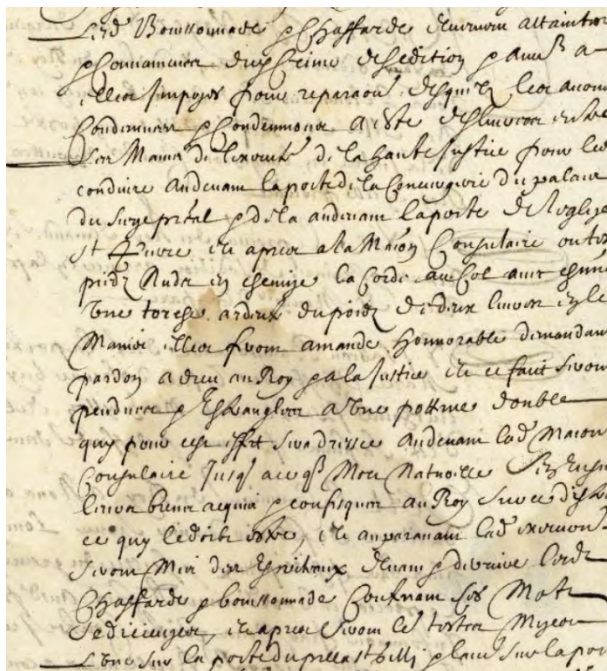 Lesd Boissonnade & Chaffarde deuement attaintes
& Convaincues du Crime de sedition & aues a
elles imposés pour reparaon desquelz les auons
Condamnees & Condemnons a este deslivrees es
Mains de lexecuteur de la haute Justice pour les
conduire audeuant la porte de la Conciergerie du palais
du siege pnal & de la audeuant la porte de leglise
st et apres a la Maison Consulaire ou
piedz nudz en chemise la Corde au Col
Une torche ardente du poidz de deux liures en le
Mains elles feront amande honnorable demandant
pardon a dieu au Roy & a la Justice et ce fait seront
pendues & Estranglees a Une pottence double
quy pour cest effet sera dressee audeuant lad Maison
Consulaire Jusqs a ce qs Mort Naturelle sen
leurs biens acquis & confisques au Roy
ce quy le doibt estre, et auparauant lad execuon
seront Mis des Escriteaux deuant & derriere lesd
Chaffarde & boissonnade Contenant ces Mots
sedicieuses, et apres seront les testes Mizes
L'une sur la porte du & l'autre sur la por